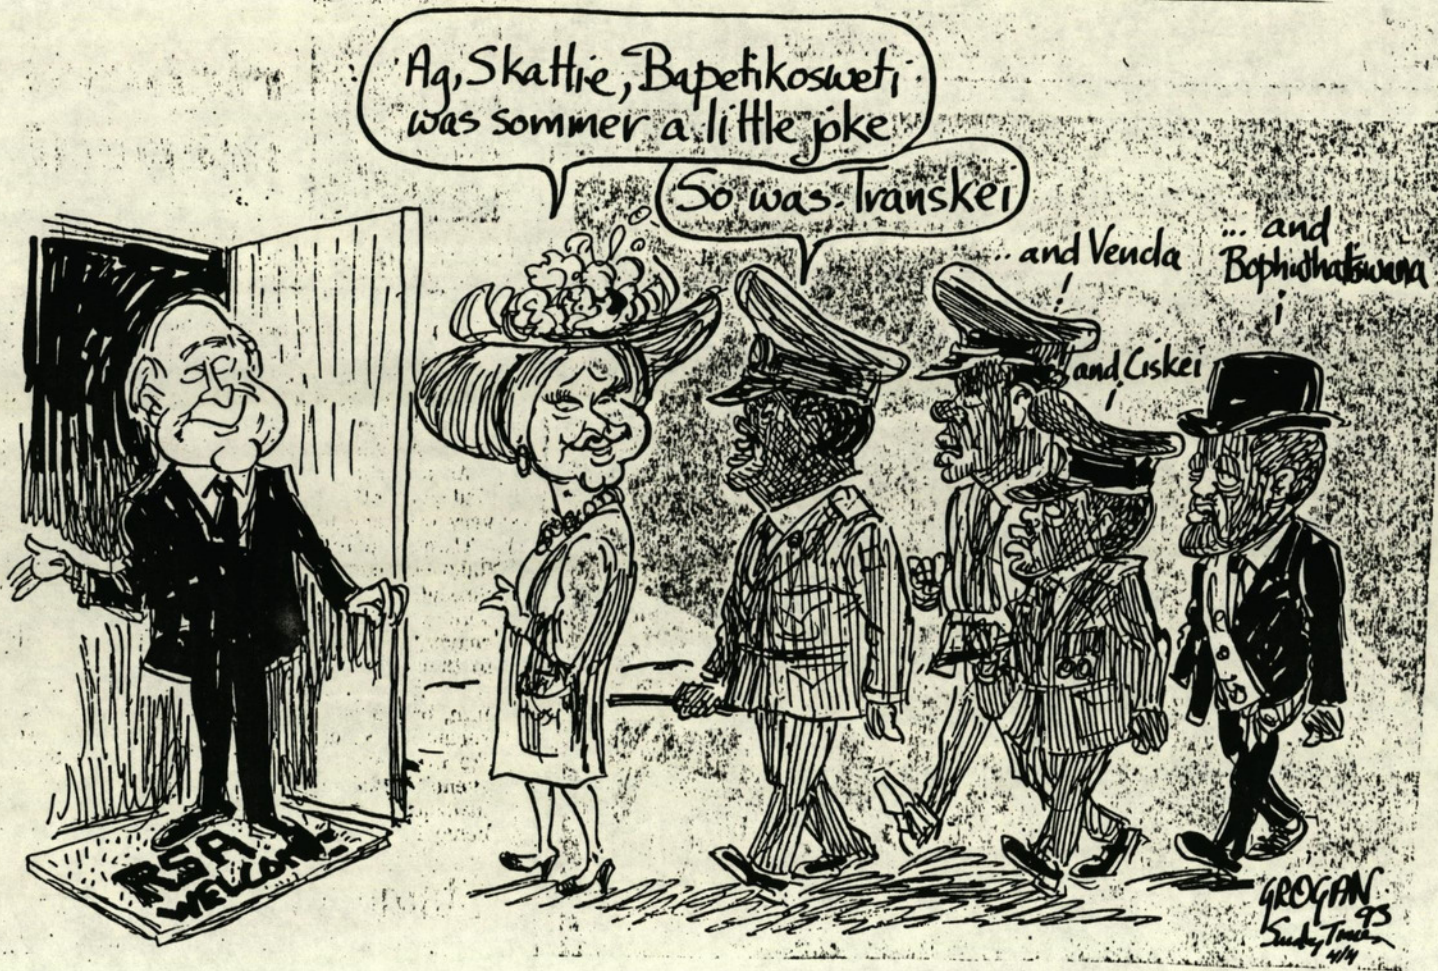 Ag, Skattie, Bapetikosweti
was sommer a little joke
So was Transkei
... and Venda
and Ciskei
... and
Bophuthatswana
RSA
WELCOME
GROGAN
93
Sunday Times
4/4